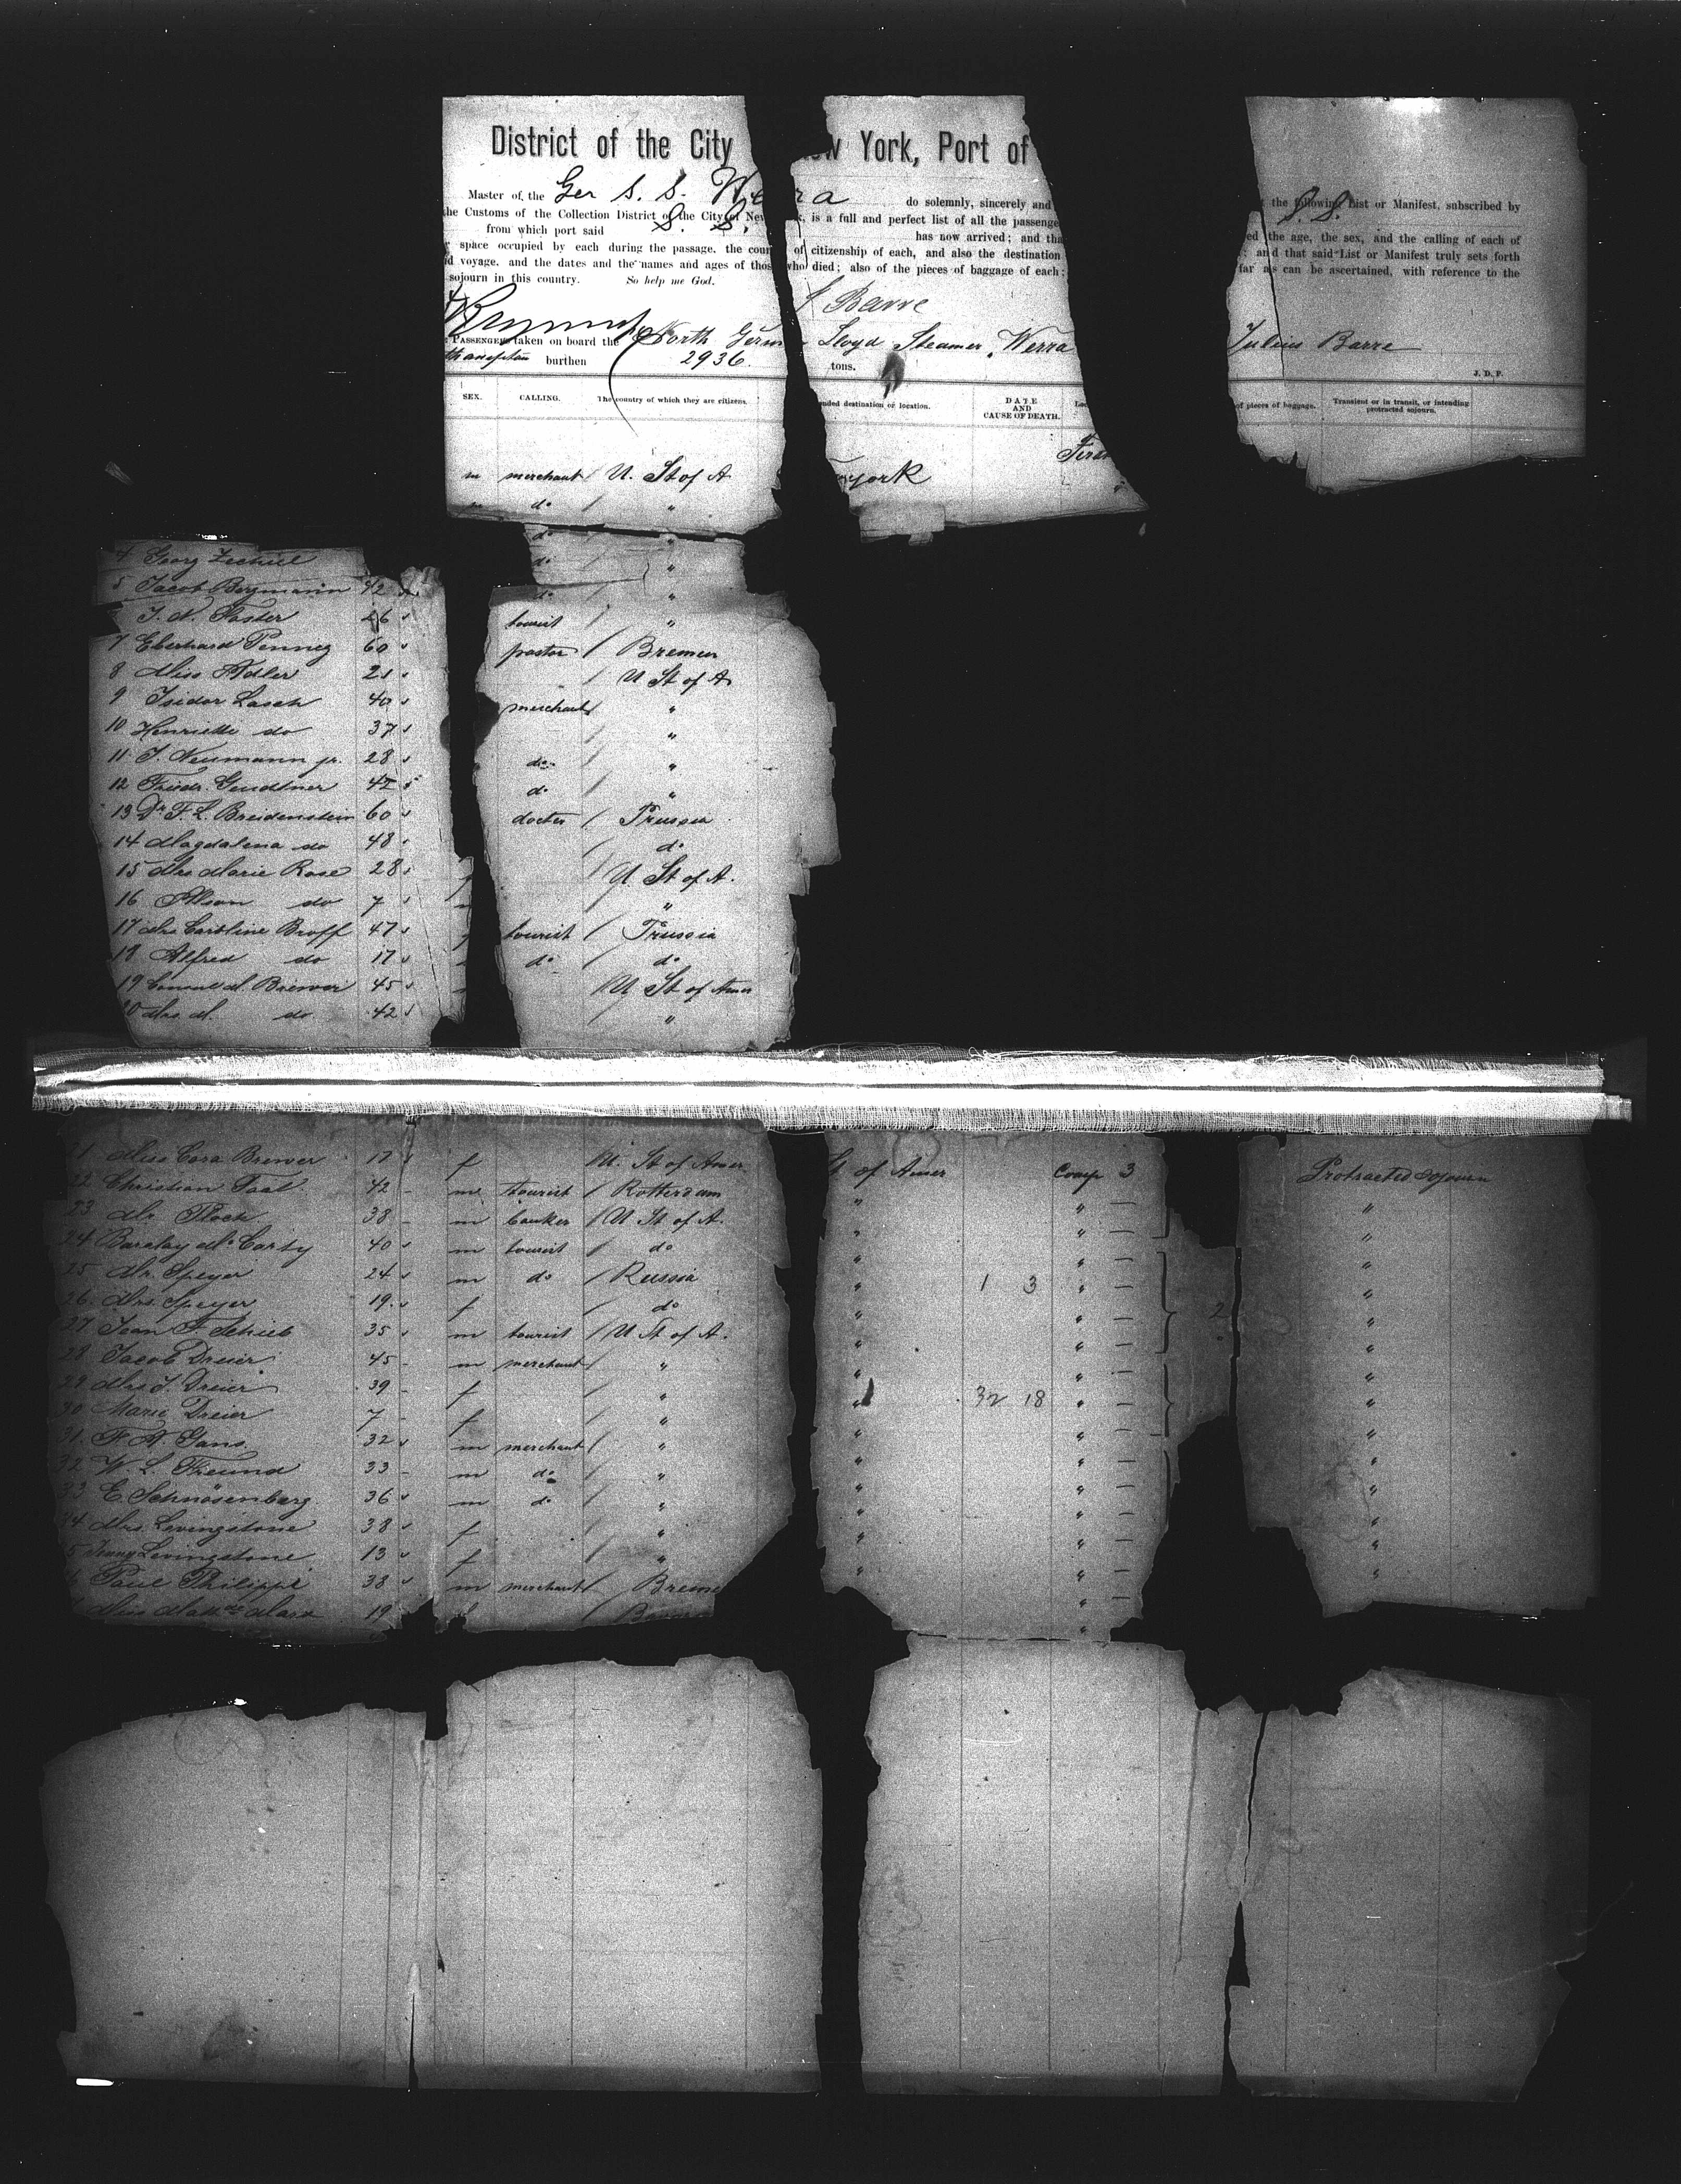 District of the City ew York, Port of
Master of the Ger S. S. Werra do solemnly, sincerely and the following List or Manifest, subscribed by
he Customs of the Collection District of the City of New k, is a full and perfect list of all the passenge S.S.
from which port said S. S. has now arrived; and tha ed the age, the sex, and the calling of each of
space occupied by each during the passage, the coun of citizenship of each, and also the destination ; and that said List or Manifest truly sets forth
d voyage, and the dates and the names and ages of those who died; also of the pieces of baggage of each; far as can be ascertained, with reference to the
sojourn in this country. So help me God.
Barre
PASSENGERS taken on board the North Germ Lloyd Steamer Werra Julius Barre
burthen 2936 tons.
J. D. P.
SEX. CALLING. The country of which they are citizens. nded destination or location. DATE AND CAUSE OF DEATH. Loc of pieces of baggage. Transient or in transit, or intending protracted sojourn.
First
m merchant U. St of A york
do "
do "
4 Georg do "
5 Jacob Bergmann 42 do "
J. N. Foster 26 tourist "
7 Eberhard 60 pastor Bremen
8 Miss Adler 21 U St of A
9 Isidor Lasch 40 merchant "
10 Henriette do 37 "
11 J. Neumann jr. 28 do "
12 Friedr. 42 do "
13 Dr F. L. Breidenstein 60 docter Prussia
14 Magdalena do 48 do
15 Mrs Marie Rose 28 U. St of A.
16 do 7 "
17 Mrs Caroline 47 tourist Prussia
18 Alfred do 17 do do
19 Consul M. Brewer 45 U St of Amer
20 Mrs. M. do 42 "
1 Miss Cora Brewer 17 f U. St of Amer St of Amer Comp 3 Protracted sojourn
22 Christian 42 m tourist Rotterdam " " — "
23 Mr. 38 m banker U St of A. " " — "
24 Barclay McCarty 40 m tourist do " " — "
25 Mr. Speyer 24 m do Russia " 1 3 " — "
26 Mrs. Speyer 19 f do " " — 2 "
27 Jean F. 35 m tourist U St of A. " " — "
28 Jacob Dreier 45 m merchant " " " — "
29 Mrs J. Dreier 39 f " " 32 18 " — "
30 Marie Dreier 7 f " " " — "
31 F. A. Gans 32 m merchant " " " — "
32 W. L. Freund 33 m do " " " — "
33 E. Schnösenberg 36 m do " " " — "
34 Mrs. Levingstone 38 f " " " — "
5 Jenny Levingstone 13 f " " " — "
Paul Philippi 38 m merchant Breme " " — "
Miss 19 f "